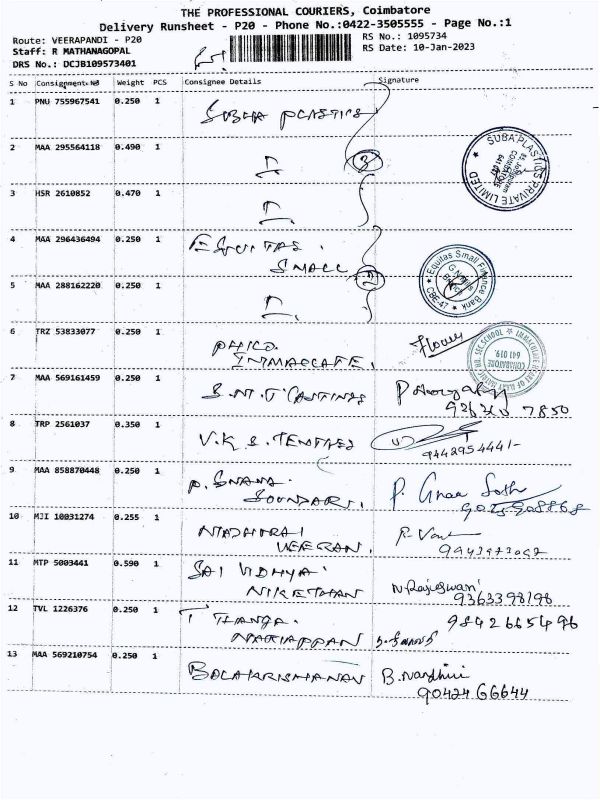 THE PROFESSIONAL COURIERS, Coimbatore
Delivery Runsheet - P20 - Phone No.:0422-3505555 - Page No.:1
Route: VEERAPANDI - P20
RS No.: 1095734
Staff: R MATHANAGOPAL
RS Date: 10-Jan-2023
DRS No.: DCJB109573401
S No Consignment N0 Weight PCS Consignee Details Signature
1 PNU 755967541 0.250 1
SUBHA PLASTICS
2 MAA 295564118 0.490 1
3
SUBA PLASTICS PRIVATE LIMITED
COIMBATORE
641 007
3 HSR 2610852 0.470 1
4 MAA 296436494 0.250 1 EQUITAS
SMALL 2
Equitas Small Finance Bank
CBE-47
5 MAA 288162220 0.250 1
6 TRZ 53833077 0.250 1
PHILO
Flower
COIMBATORE
641 019.
7 MAA 569161459 0.250 1
S.M.T CASTINGS
7850
8 TRP 2561037 0.350 1
V.K.S. TEXTILES
9442954441-
9 MAA 858870448 0.250 1
P. GNANA
SOUNDARI.
10 MJI 10031274 0.255 1
VEERAN.
11 MTP 5003441 0.590 1
SAI VIDHYA
NIKETHAN
N.Rajeswari
9363398198
12 TVL 1226376 0.250 1
T THANGA
MARIAPPAN
9842665496
13 MAA 569210754 0.250 1
BALAKRISHANAN
B.Nandhini
9042466644